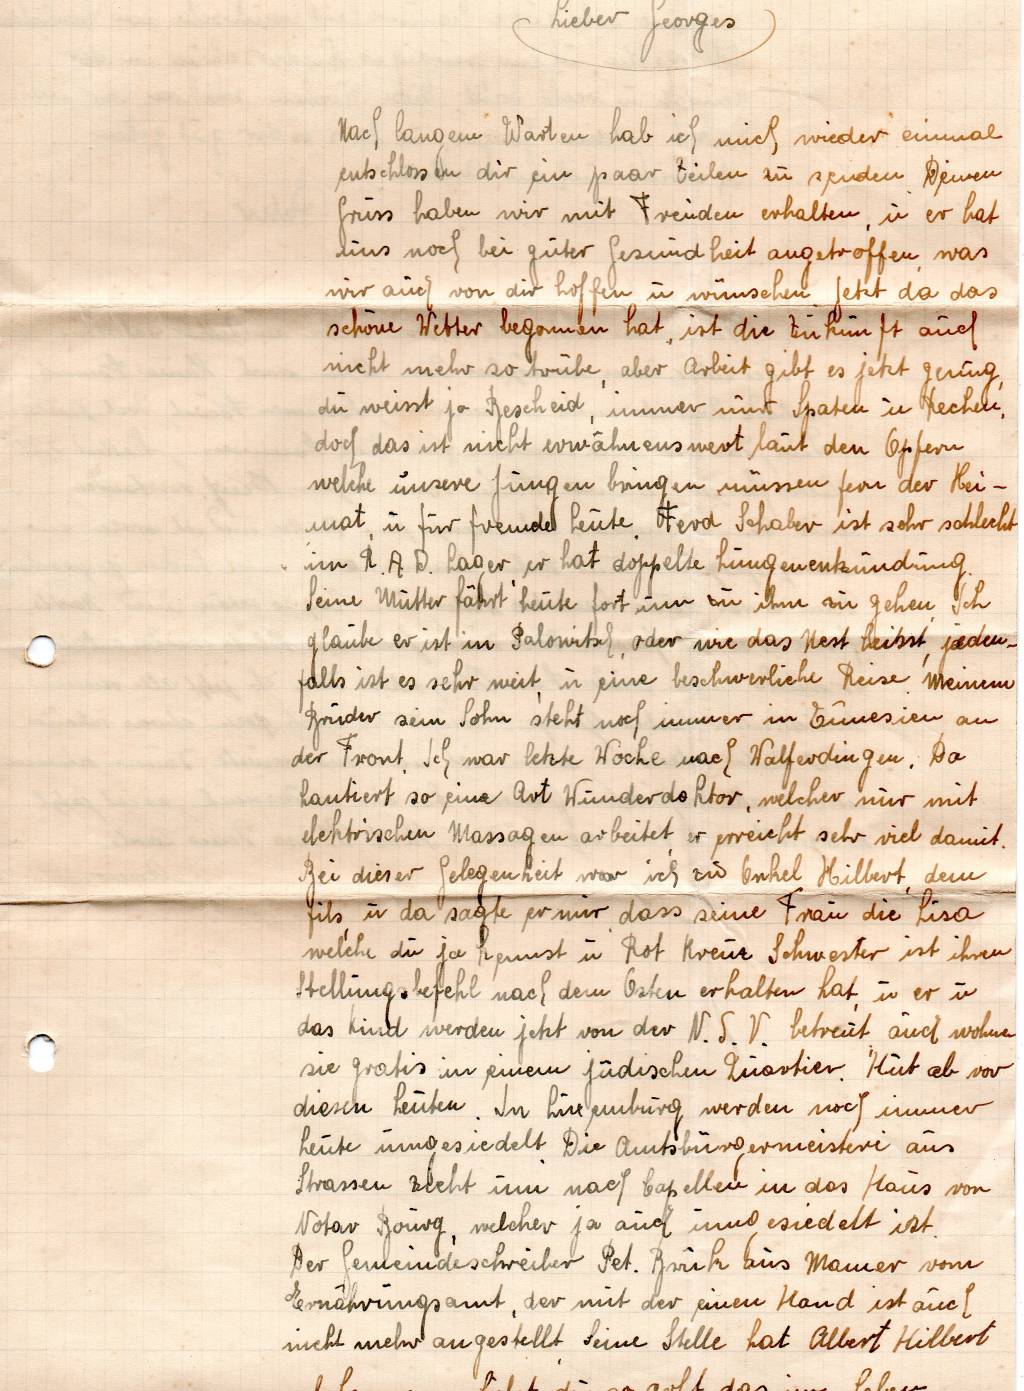 Lieber Georges
Nach langem Warten hab ich mich wieder einmal
entschlossen dir ein paar Zeilen zu senden. Deinen
Gruss haben wir mit Freuden erhalten, u er hat
uns noch bei guter Gesundheit angetroffen, was
wir auch von dir hoffen u wünschen. Jetzt da das
schöne Wetter begonnen hat, ist die Zukunft auch
nicht mehr so trübe, aber Arbeit gibt es jetzt genug,
du weisst ja Bescheid, immer nur Spaten u Rechen,
doch das ist nicht erwähnenswert laut den Opfern
welche unsere Jungen bringen müssen fern der Hei-
mat, u für fremde Leute. Ferd Schaber ist sehr schlecht
im R.A.D. Lager, er hat doppelte Lungenenzündung.
Seine Mutter fährt heute fort um zu ihm zu gehen. Ich
glaube er ist in Palowitsch, oder wie das Nest heisst, jeden-
falls ist es sehr weit, u eine beschwerliche Reise. Meinem
Bruder sein Sohn steht noch immer in Tunesien an
der Front. Ich war letzte Woche nach Walferdingen. Da
hantiert so eine Art Wunderdoktor, welcher nur mit
elektrischen Massagen arbeitet, er erreicht sehr viel damit.
Bei dieser Gelegenheit war ich zu Onkel Hilbert, dem
fils, u da sagte er mir, dass seine Frau die Lisa
welche du ja kennst u Rot Kreuz Schwester ist ihren
Stellungsbefehl nach dem Osten erhalten hat, u er u
das Kind werden jetzt von der N.S.V. betreut auch wohnen
sie gratis in einem jüdischen Quartier. Hut ab vor
diesen Leuten. In Luxemburg werden noch immer
Leute umgesiedelt. Die Amtsbürgermeisterei aus
Strassen zieht um nach Capellen in das Haus von
Notar Bourg, welcher ja auch umgesiedelt ist.
Der Gemeindeschreiber Pet. Brük aus Mamer vom
Ernährungsamt, der mit der einen Hand ist auch
nicht mehr angestellt. Seine Stelle hat Albert Hilbert